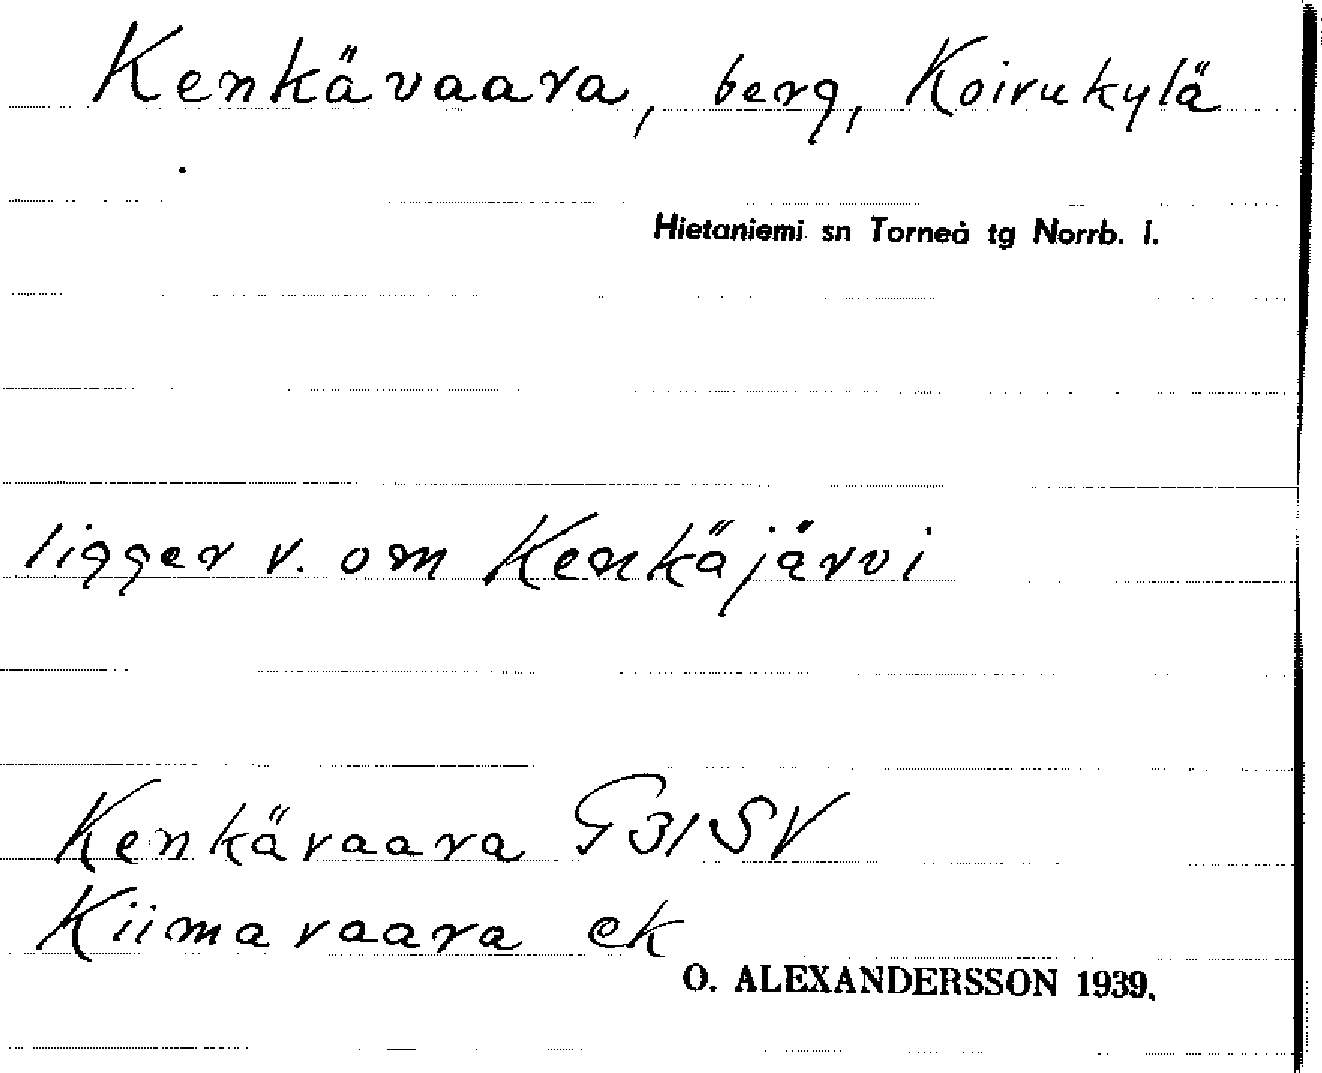 Kenkävaara, berg, Koirukylä
Hietaniemi sn Torneå tg Norrb. l.
ligger v. om Kenkäjärvi
Kenkävaara G31SV
Kiimavaara ek
O. ALEXANDERSSON 1939.